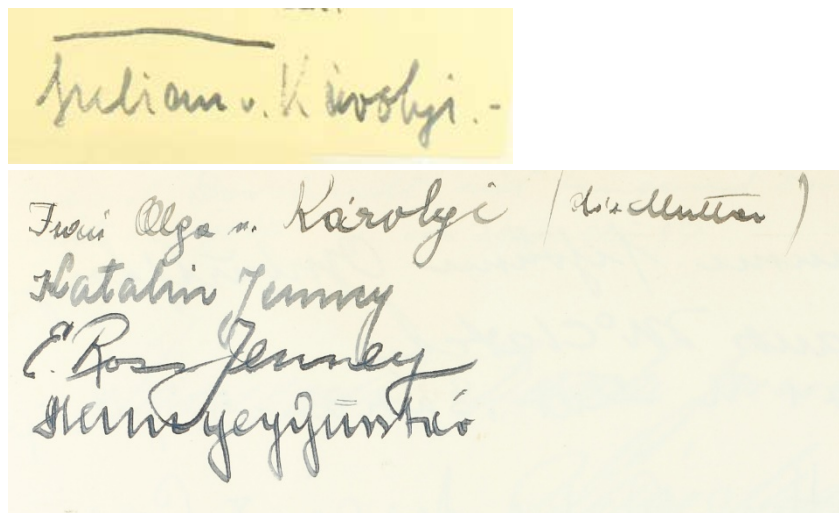 Julian v. Károlyi.-
Frau Olga v. Károlyi (die Mutter)
Katalin Jenney
E. Ross Jenney